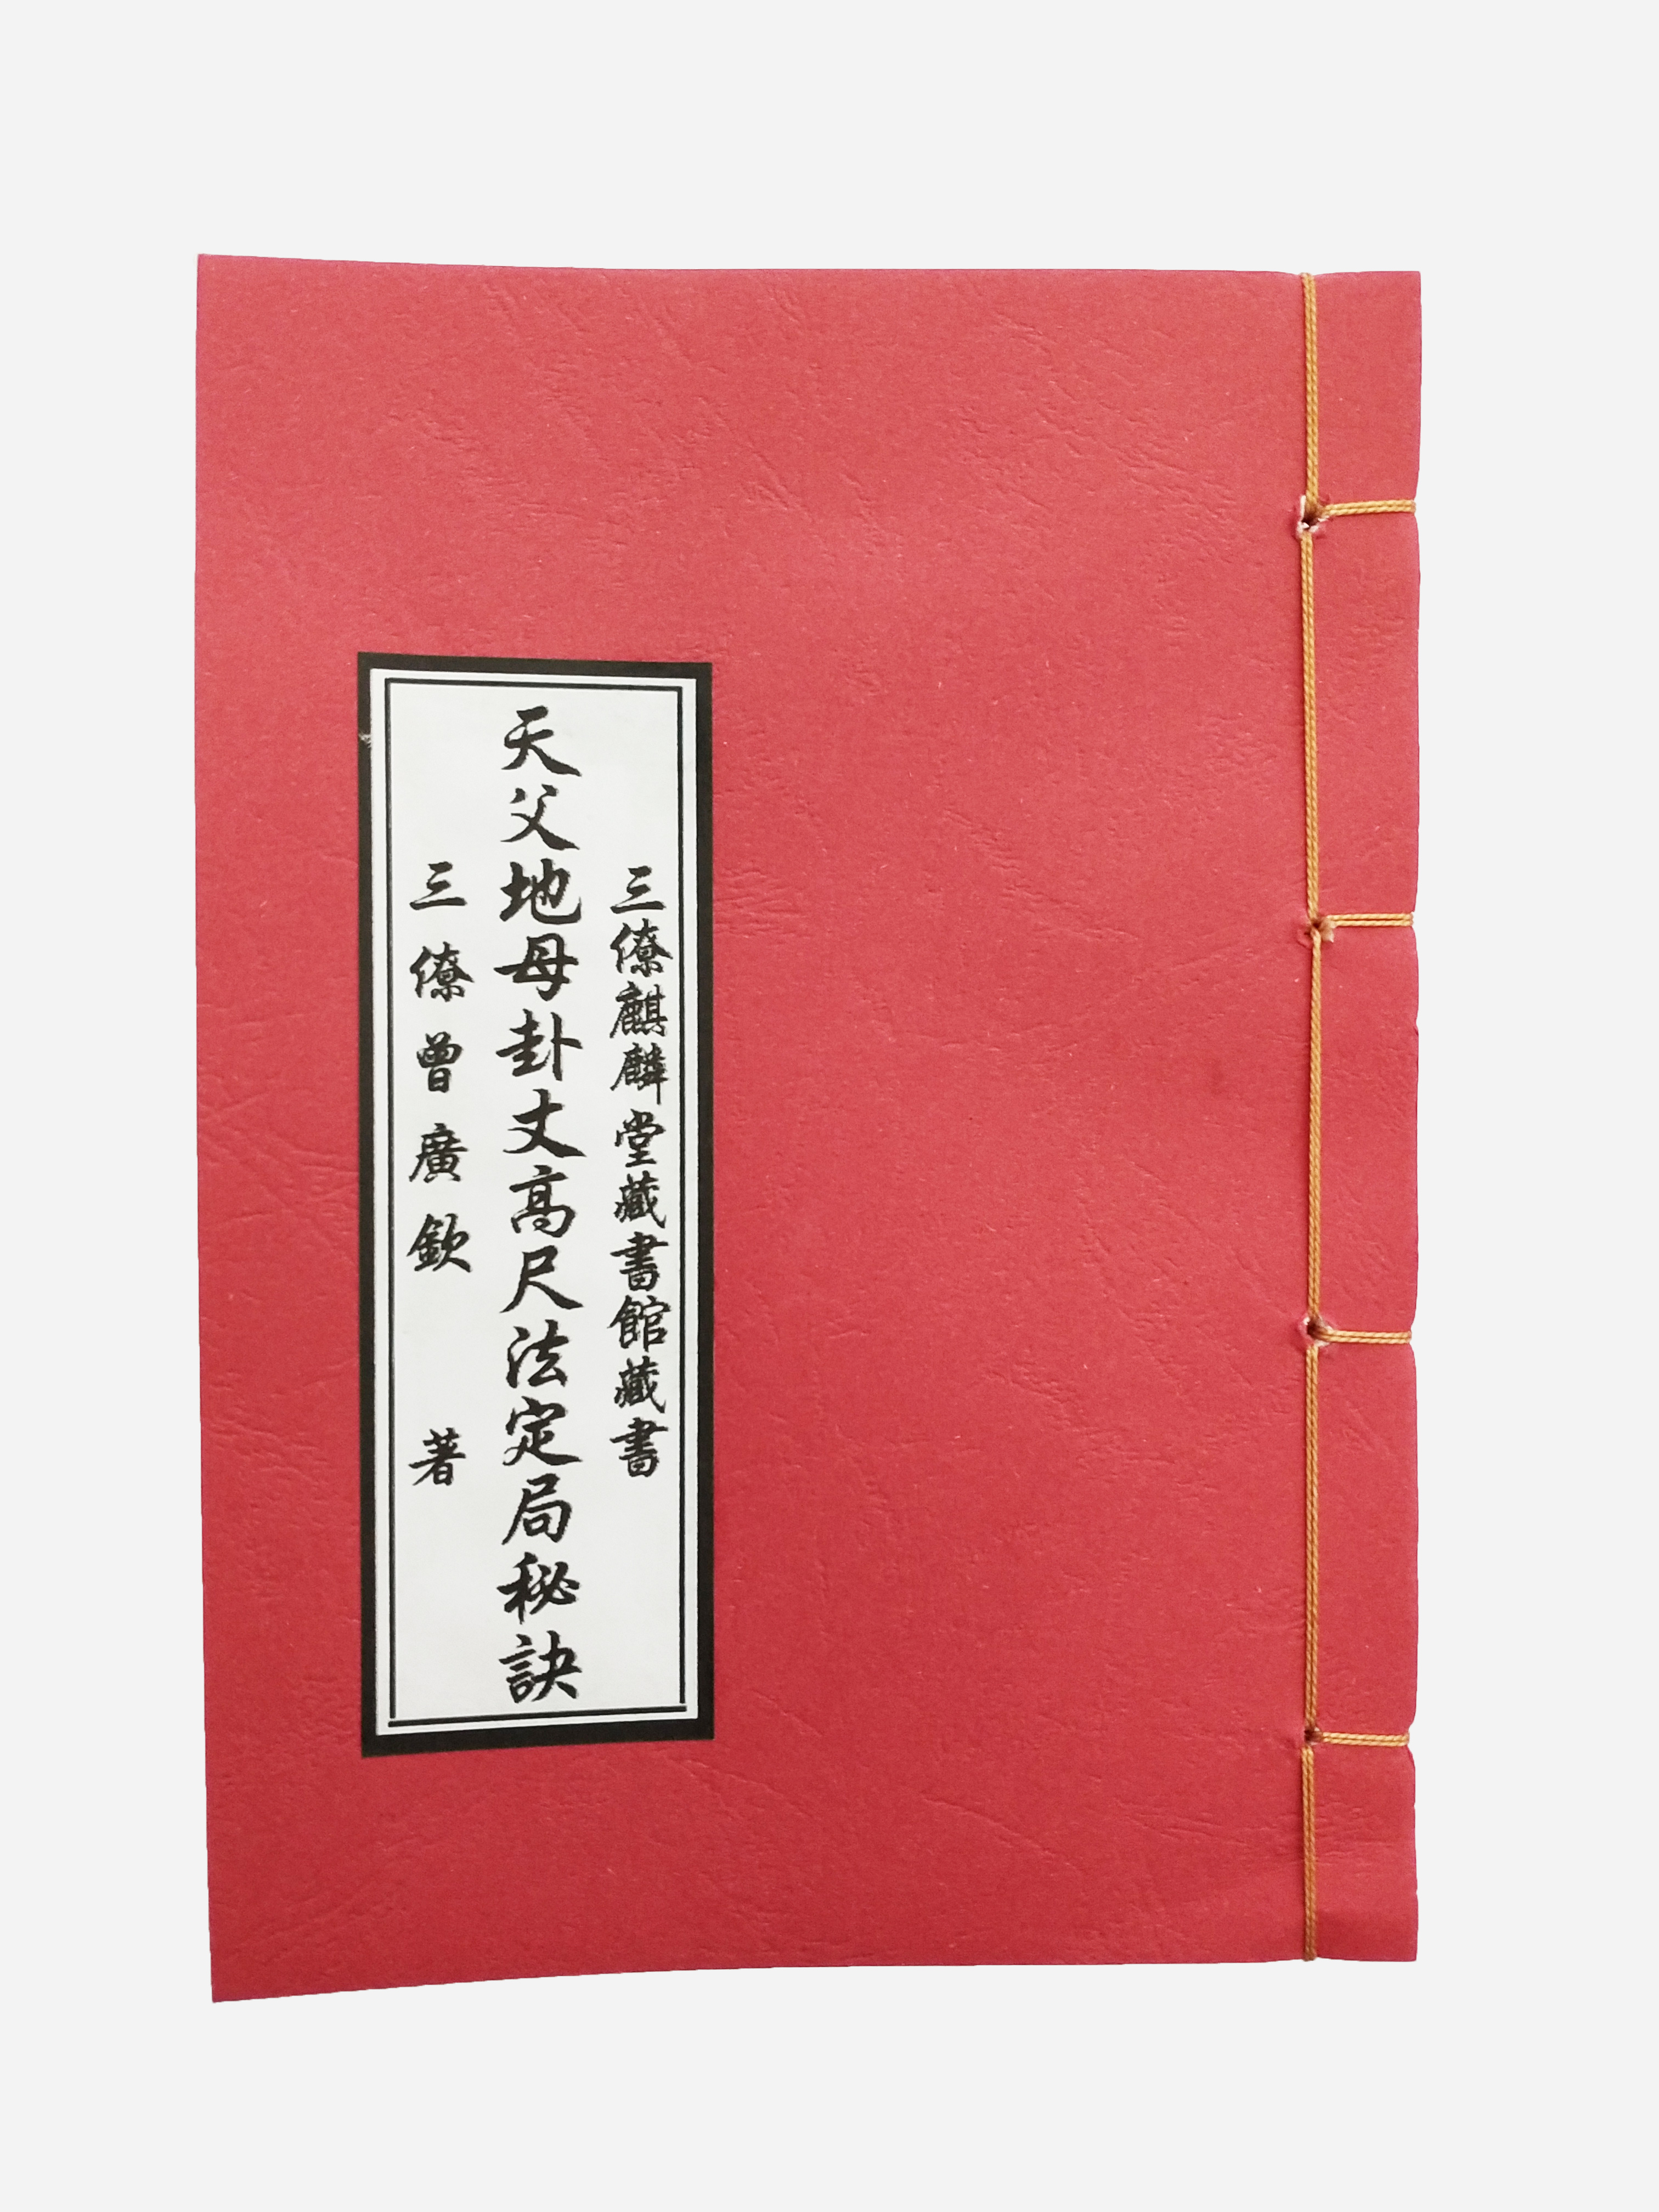 三僚麒麟堂藏書館藏書
天父地母卦丈高尺法定局秘訣
三僚曾廣欽 著